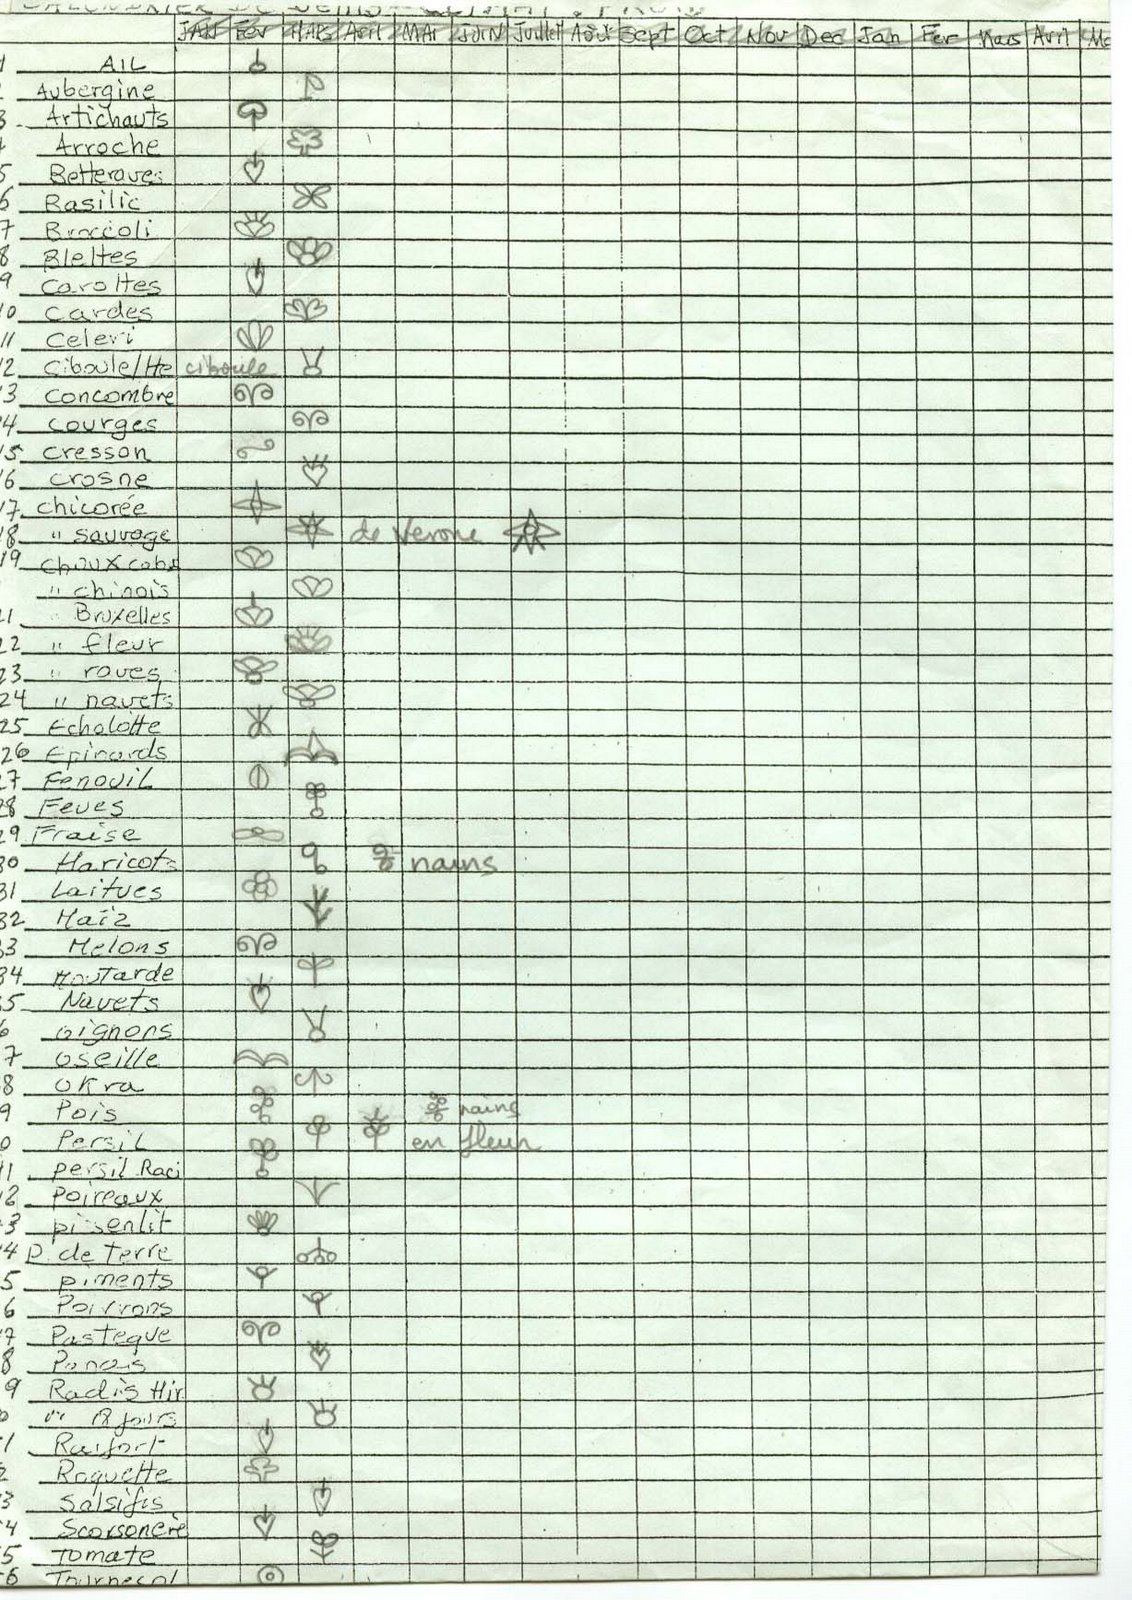 CALENDRIER DE SEMIS
JAN Fev MARS Avril MAI JUIN Juillet Août Sept Oct Nov Dec Jan Fev Mars Avril
1 AIL
Aubergine
3 Artichauts
Arroche
5 Betteraves
6 Basilic
7 Broccoli
8 Blettes
9 Carottes
10 Cardes
11 Celeri
12 Ciboule/He ciboule
13 Concombre
14 courges
15 cresson
16 crosne
17 chicorée
18 " sauvage de Verone
19 choux cabu
" chinois
21 " Bruxelles
22 " fleur
23 " raves
24 " navets
25 Echalotte
26 Epinards
27 Fenouil
28 Feves
29 Fraise
30 Haricots nains
31 Laitues
32 Maïz
33 Melons
34 Moutarde
35 Navets
6 oignons
7 oseille
8 OKra
9 Pois nains
0 Persil en fleur
41 persil Raci
42 Poireaux
43 pissenlit
44 P. de Terre
5 piments
6 Poivrons
47 Pasteque
8 Panais
9 Radis Hir
0 " 18 jours
1 Raifort
2 Roquette
3 Salsifis
4 Scorsonère
5 Tomate
6 Tournesol